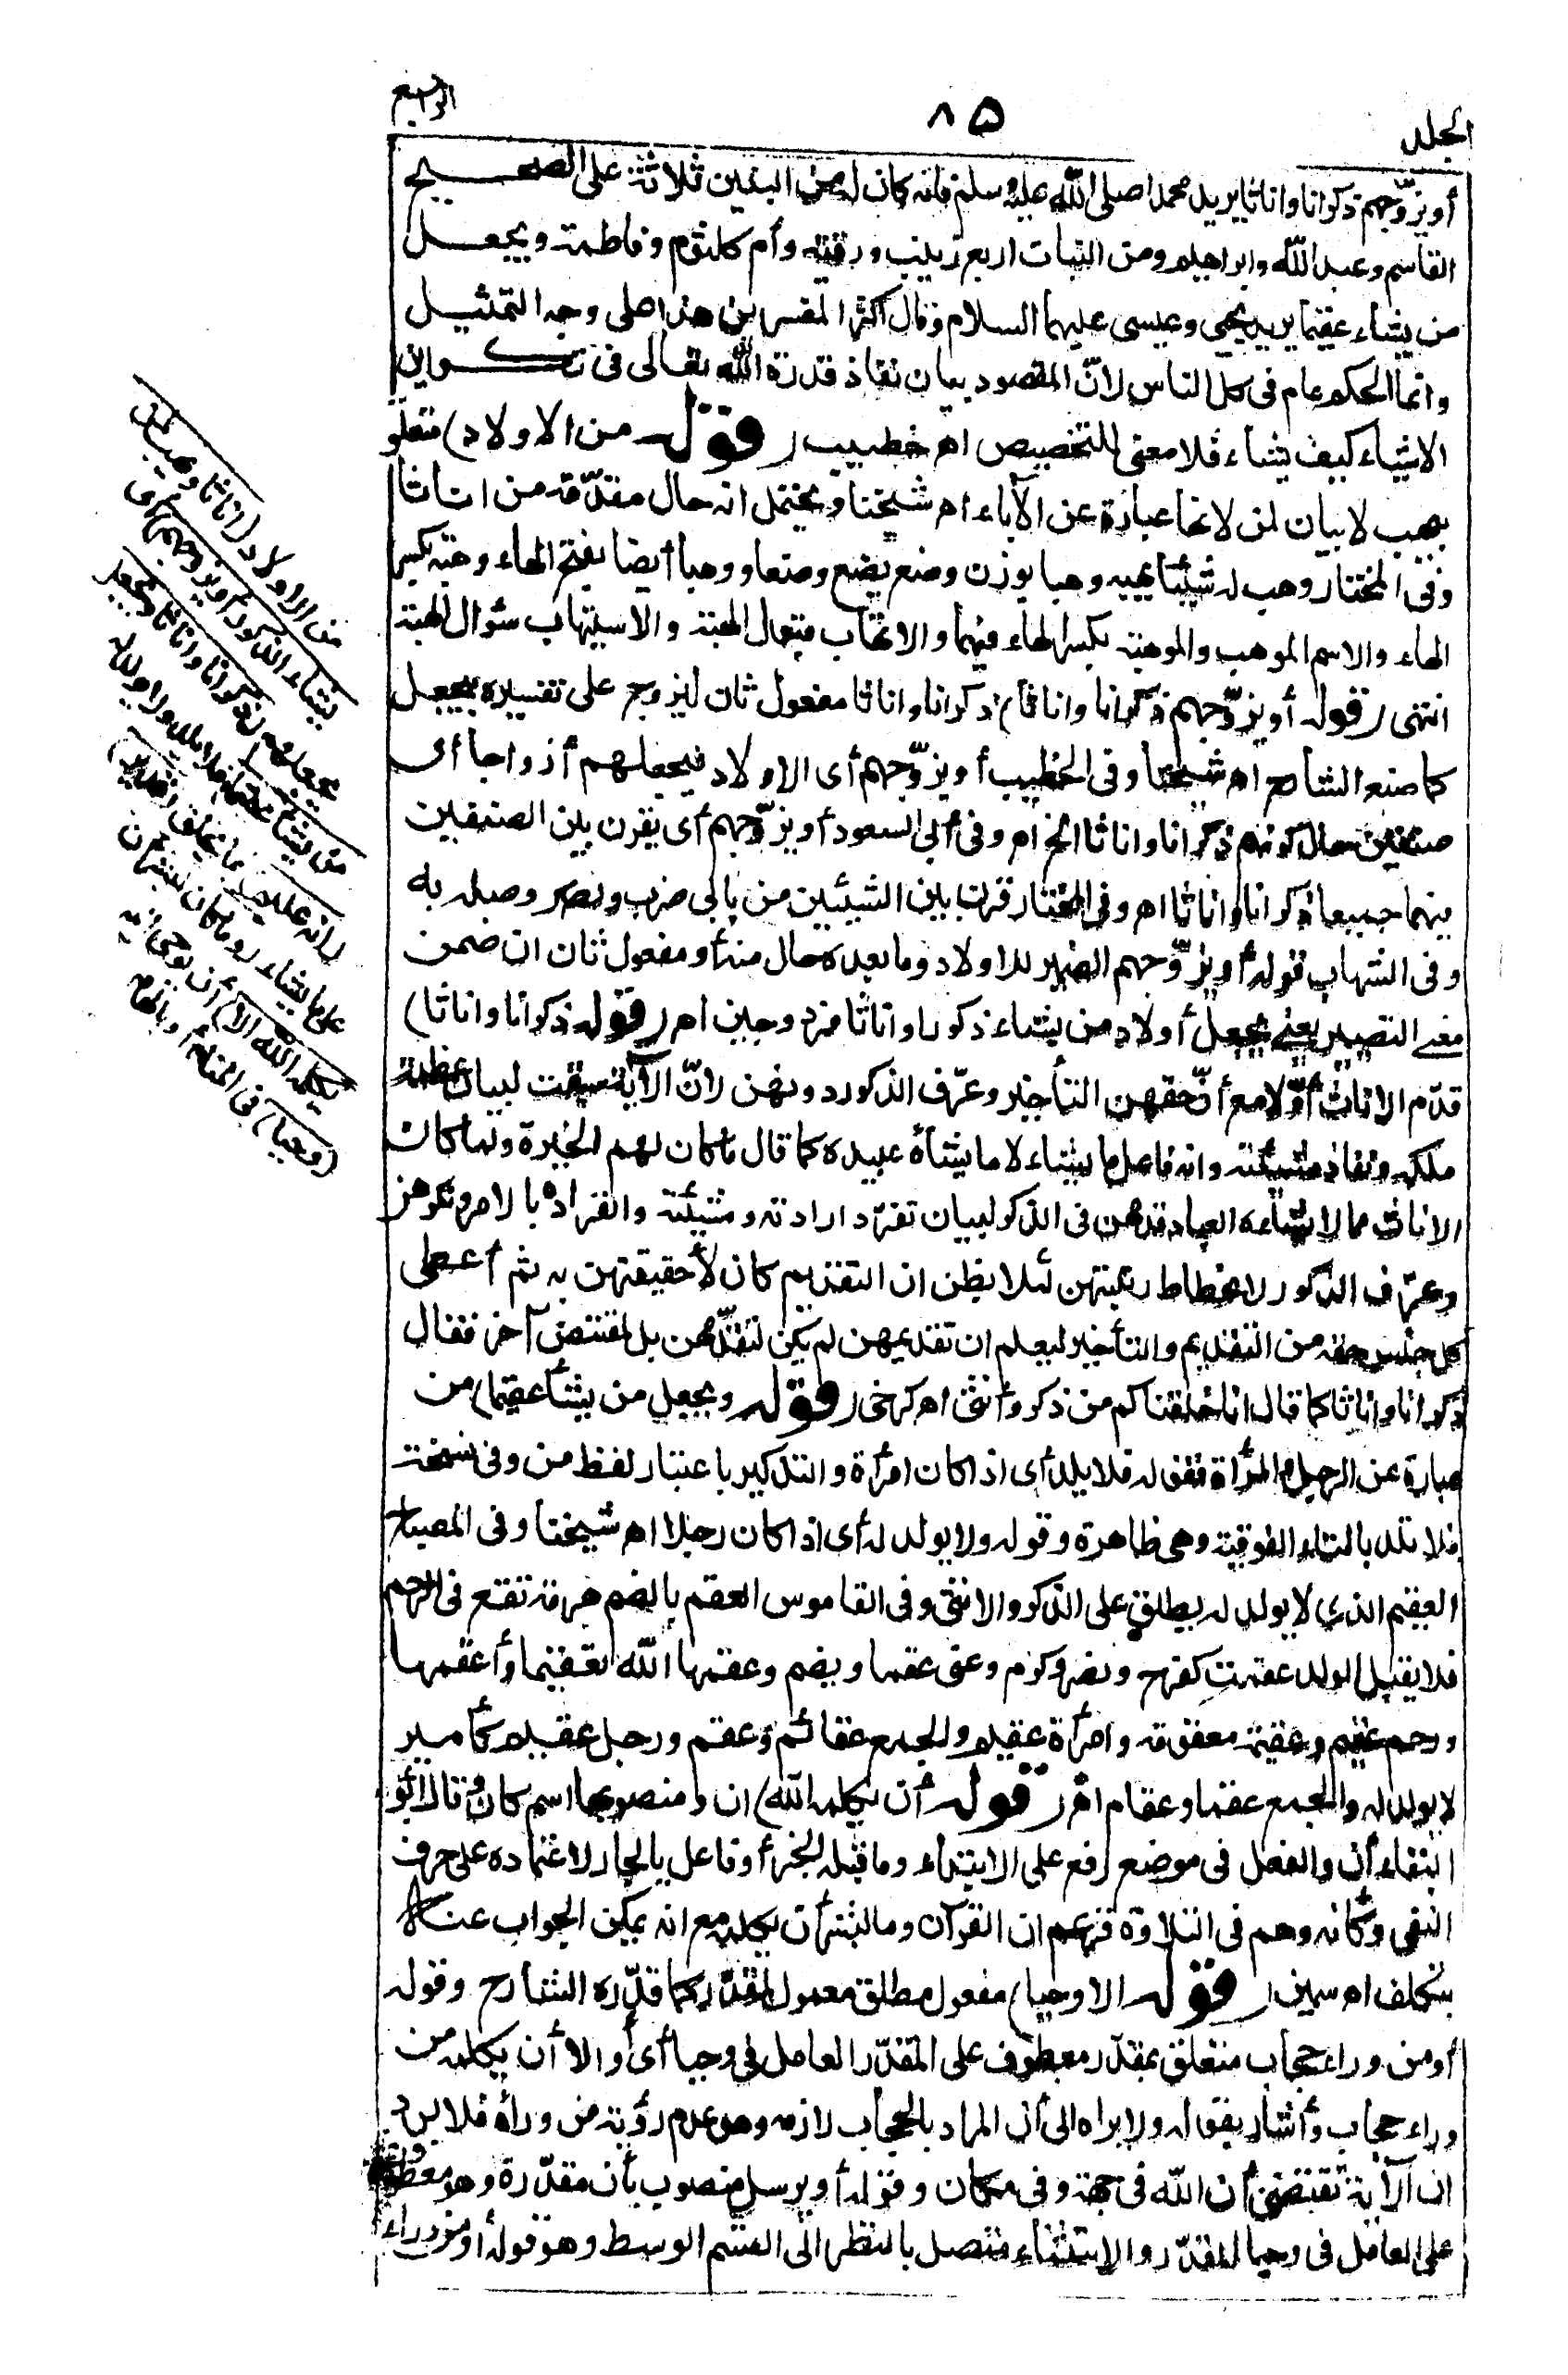 الجلد
٨٥
الرابع
أويزوّجهم ذكرانا واناثا يريد محمدا صلى الله عليه وسلم فانه كان له من البنين ثلاثة على الصحيح
القاسم وعبد الله وابراهيم ومن البنات اربع زينب ورقية وأم كلثوم وفاطمة ويجعل
من يشاء عقيما يريد يحيى وعيسى عليهما السلام وقال أكثر المفسرين هذا على وجه التمثيل
وانما الحكم عام فى كل الناس لانّ المقصود بيان نفاذ قدرة الله تعالى فى تكوين
الاشياء كيف يشاء فلا معنى للتخصيص اه خطيب (قوله من الاولاد) متعلق
بيهب لا بيان لمن لانها عبارة عن الآباء اه شيخنا ويحتمل انه حال مقدّمة من اناثا
وفى المختار وهب له شيئا يهبه وهبا بوزن وضع يضع وضعا ووهبا أيضا بفتح الهاء وهبة بكسر
الهاء والاسم الموهب والموهبة بكسر الهاء فيهما والاتهاب قبول الهبة والاستيهاب سؤال الهبة
انتهى (قوله أو يزوّجهم ذكرانا واناثا) ذكرانا واناثا مفعول ثان ليزوج على تفسيره بيجعل
كما صنع الشارح اه شيخنا وفى الخطيب أو يزوّجهم أى الاولاد فيجعلهم أزواجا أى
صنفين حال كونهم ذكرانا واناثا الخ اه وفى أبى السعود أو يزوّجهم أى يقرن بين الصنفين
فيهما جميعا ذكرانا واناثا اه وفى المختار قرن بين الشيئين من بابى ضرب ونصر وصله به
وفى الشهاب قوله أو يزوّجهم الضمير للاولاد وما بعده حال منه أو مفعول ثان ان ضمن
معنى التصيير يعنى يجعل أولاد من يشاء ذكورا واناثا مزدوجين اه (قوله ذكرانا واناثا)
قدّم الاناث أوّلا مع أنّ حقهن التأخير وعرّف الذكور دونهن لانّ الآية سيقت لبيان عظمة
ملكه ونفاذ مشيئته وانه فاعل ما يشاء لا ما يشاء عبيده كما قال ما كان لهم الخيرة ولما كان
الاناث مما لا يشاءه العباد قدمهن فى الذكر لبيان تفرّد ارادته ومشيئته وانفراده بالامر ونكرهن
وعرّف الذكور لانحطاط رتبتهن لئلا يظن ان التقديم كان لأحقيتهن به ثم أعطى
كل جنس حقه من التقديم والتأخير ليعلم ان تقديمهن لم يكن لتقدّمهن بل لمقتض آخر فقال
ذكرانا واناثا كما قال انا خلقناكم من ذكر وأنثى اه كرخى (قوله ويجعل من يشاء عقيما) من
عبارة عن الرجل والمرأة فقوله فلا يلد أى اذا كان امرأة والتذكير باعتبار لفظ من وفى نسخة
فلا تلد بالتاء الفوقية وهى ظاهرة وقوله ولا يولد له أى اذا كان رجلا اه شيخنا وفى المصباح
العقيم الذي لا يولد له يطلق على الذكر والانثى وفى القاموس العقم بالضم هزمة تقع فى الرحم
فلا يقبل الولد عقمت كفرح ونصر وكرم وعنى عقما ويضم وعقمها الله تعقيما وأعقمها
ورحم عقيم وعقيمة معقومة وامرأة عقيم والجمع عقائم وعقم ورجل عقيم كأمير
لا يولد له والجمع عقما وعقام اه (قوله أن يكلمه الله) ان ومنصوبها اسم كان وقال أبو
البقاء أن والفعل فى موضع رفع على الابتداء وما قبله الخبر أو فاعل بالجار لاعتماده على حرف
النفى وكأنه وهم فى التلاوة فزعم ان القرآن وما لبشر أن يكلمه مع انه يمكن الجواب عنه
بتكلف اه سمين (قوله الا وحيا) مفعول مطلق معمول لمقدّر كما قدّره الشارح وقوله
أو من وراء حجاب متعلق بمقدّر معطوف على المقدّر العامل فى وحيا أى أو الا أن يكلمه من
وراء حجاب وأشار بقوله ولا يراه الى أن المراد بالحجاب لازمه وهو عدم رؤيته من وراءه فلا يرد
ان الآية تقتضى أن الله فى جهة وفى مكان وقوله أو يرسل منصوب بأن مقدّرة وهو معطوف
على العامل فى وحيا المقدّر والاستثناء متصل بالنظر الى القسم الوسط وهو قوله أو من وراء
من الاولاد (اناثا ويهب لمن
يشاء الذكور أويزوجهم) أى
يجعلهم (ذكرانا واناثا ويجعل
من يشاء عقيما) فلا يلد ولا يولد له
(انه عليم) بما يخلق (قدير)
على ما يشاء (وما كان لبشر أن
يكلمه الله الا) أن يوحى اليه
(وحيا) فى المنام أو بالهام